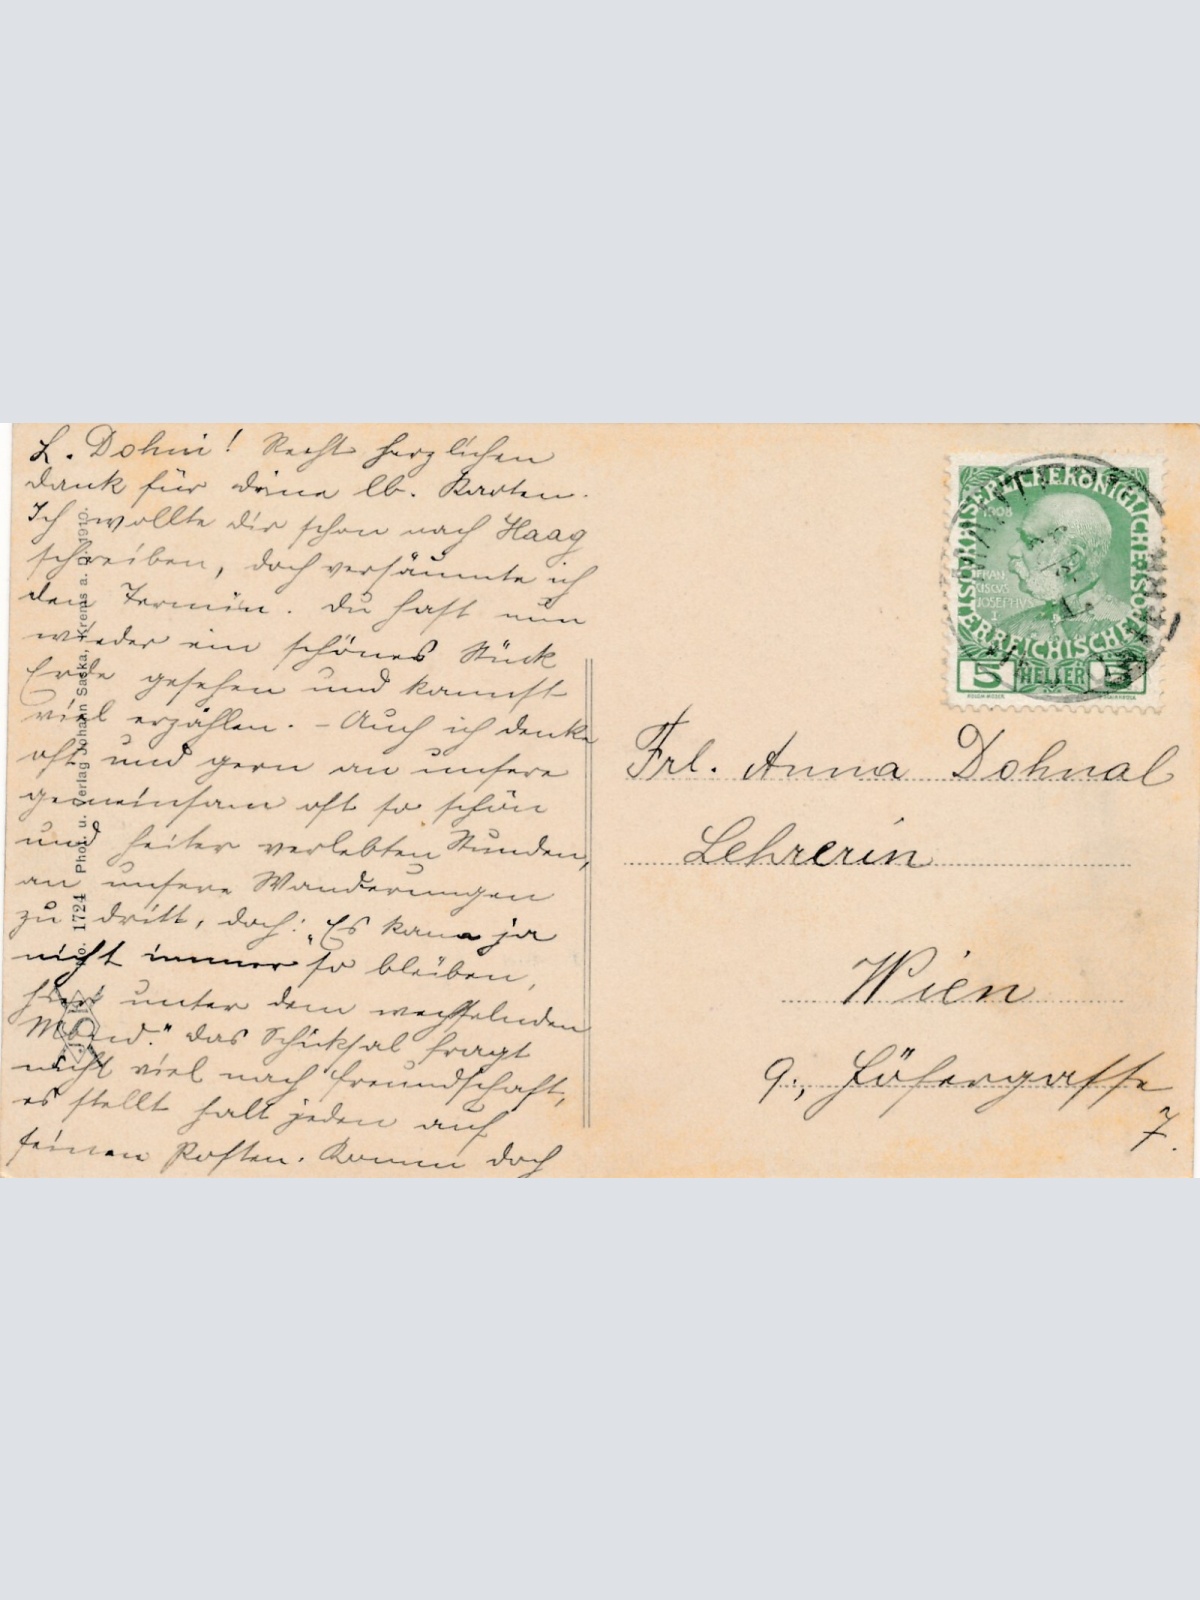 L. Dohni! Recht herzlichen
Dank für deine lb. Karten.
Ich wollte dir schon nach Haag
schreiben, doch versäumte ich
den Termin. Du hast nun
wieder ein schönes Stück
Erde gesehen und kannst
viel erzählen. – Auch ich denke
oft und gern an unsere
gemeinsam oft so schön
und heiter verlebten Stunden,
an unsere Wanderungen
zu dritt, doch: „Es kann ja
nicht immer so bleiben,
hier unter dem wechselnden
Mond." Das Schicksal fragt
nicht viel nach Freundschaft,
es stellt halt jeden auf
seinen Posten. Komm doch
No. 1724 Phot. u. Verlag Johann Saska, Krems a. D. 1910.
KAISERLICHE KÖNIGLICHE ÖSTERREICHISCHE POST
1908
FRAN
CISCVS
JOSEPHVS
I
5 HELLER 5
Frl. Anna Dohnal
Lehrerin
Wien
9., Hösergasse
7.